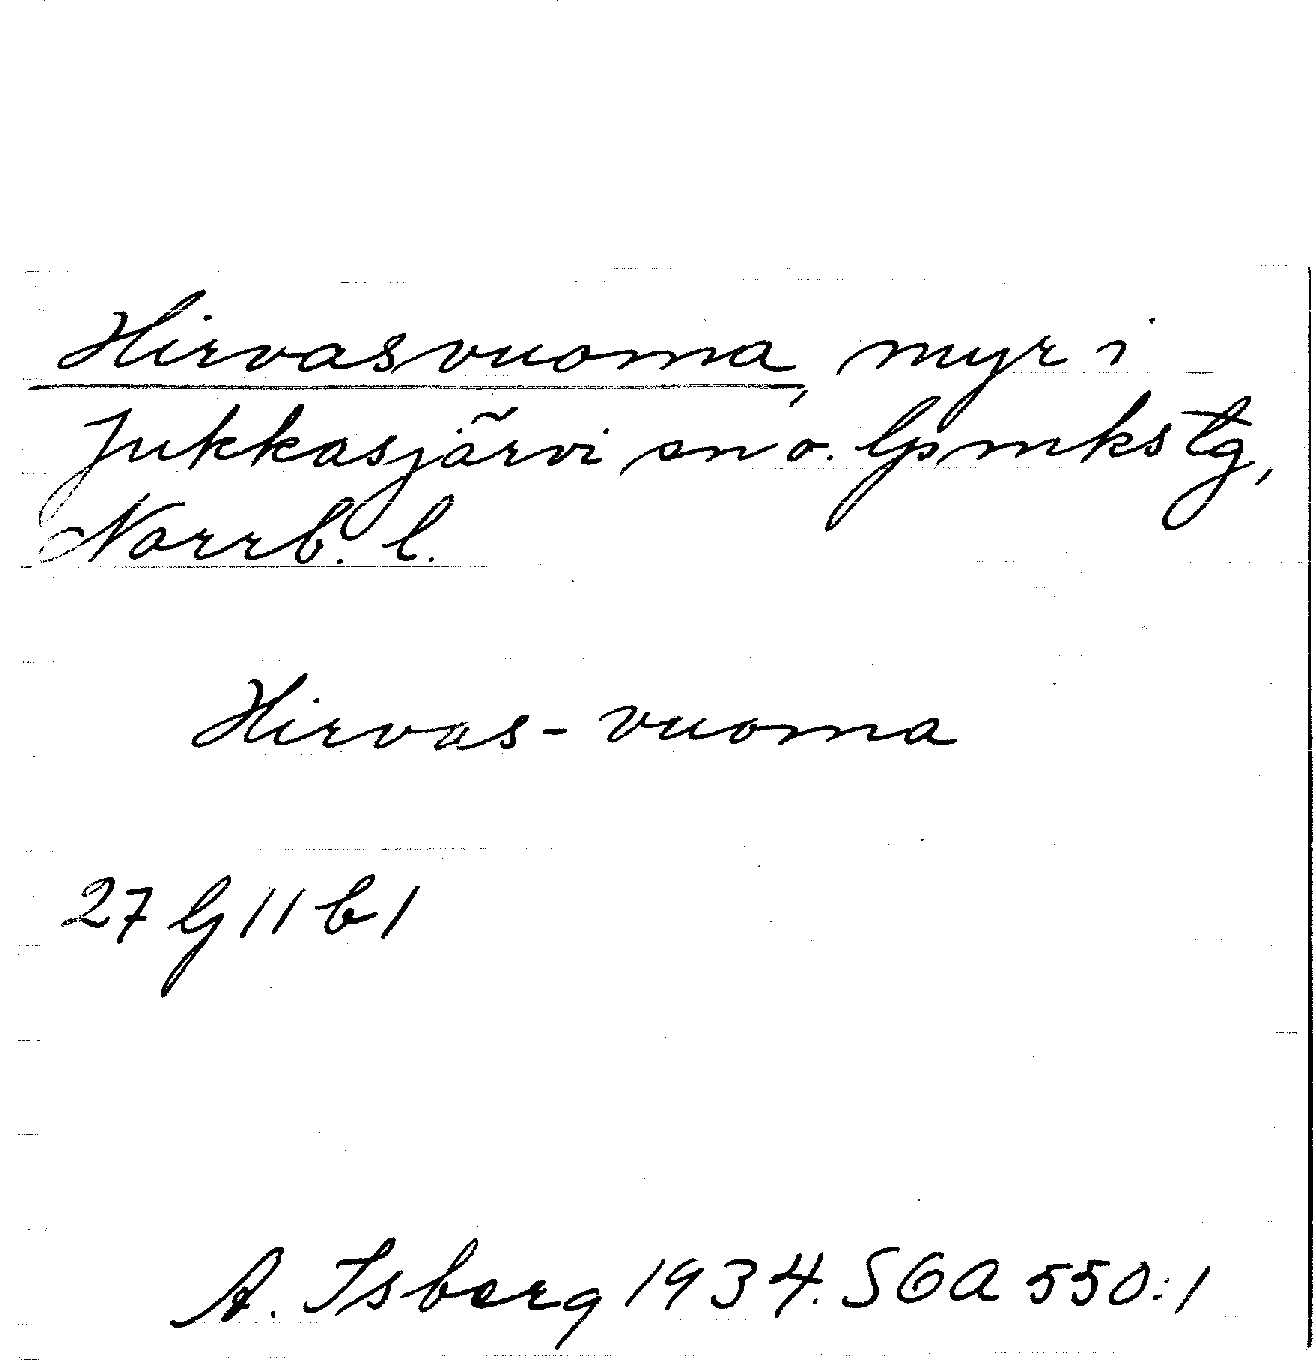 Hirvasvuoma, myr i
Jukkasjärvi sn o. lpmkstg,
Norrb. l.
Hirvas-vuoma
27 G 11 b 1
A. Isberg 1934. SGA 550:1